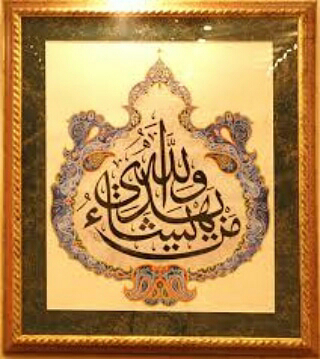 وَاللَّهُ يَهْدِي مَنْ يَشَاءُ